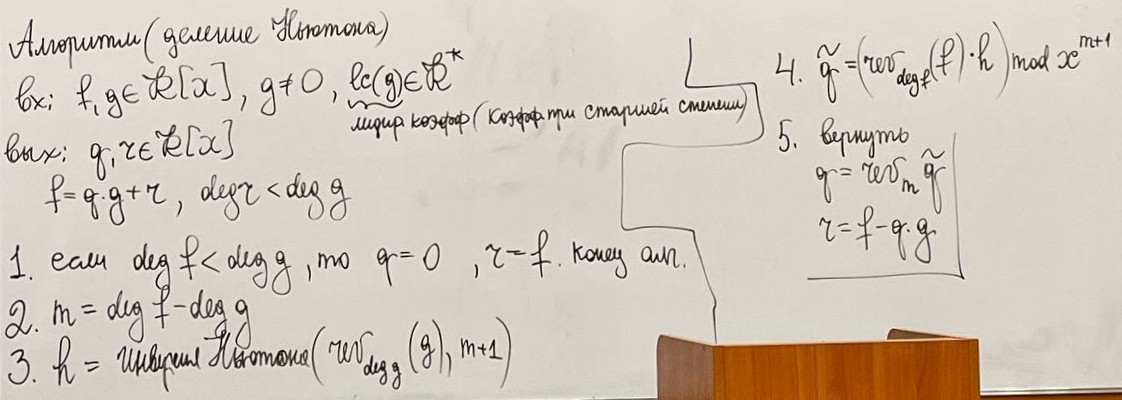 Алгоритм (деление Ньютона)
вх: f, g ∈ R[x], g ≠ 0, lc(g) ∈ R*
лидир коэфф (коэфф при старшей степени)
вых: q, r ∈ R[x]
f = q·g + r, deg r < deg g
1. если deg f < deg g, то q = 0, r = f. конец алг.
2. m = deg f - deg g
3. h = инверсия Ньютона (rev_{deg g}(g), m+1)
4. q̃ = (rev_{deg f}(f)·h) mod x^{m+1}
5. вернуть
q = rev_m q̃
r = f - q·g